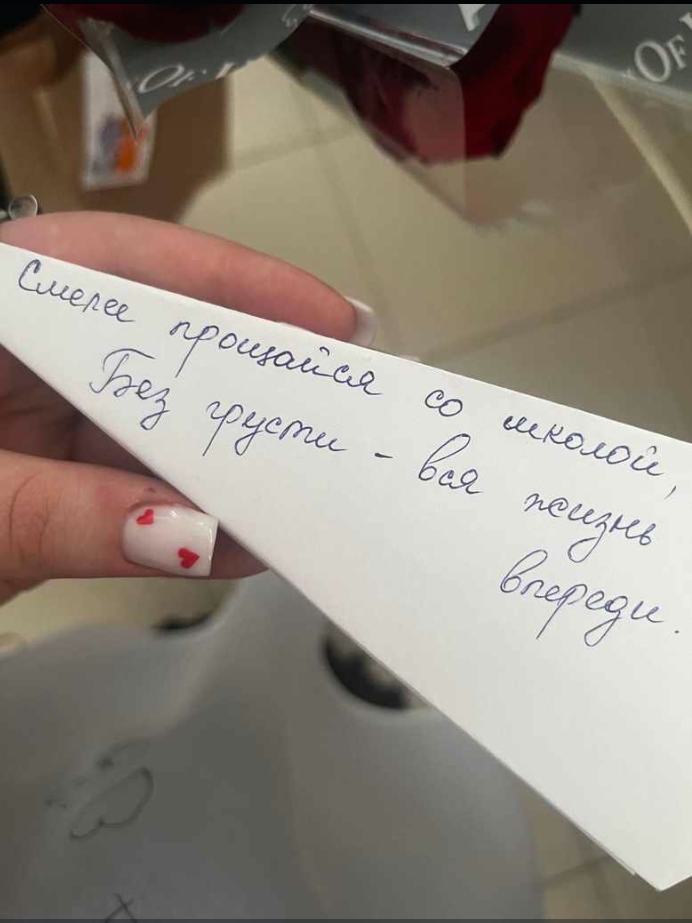 OF
OF
Смелее прощайся со школой,
Без грусти - вся жизнь
впереди.